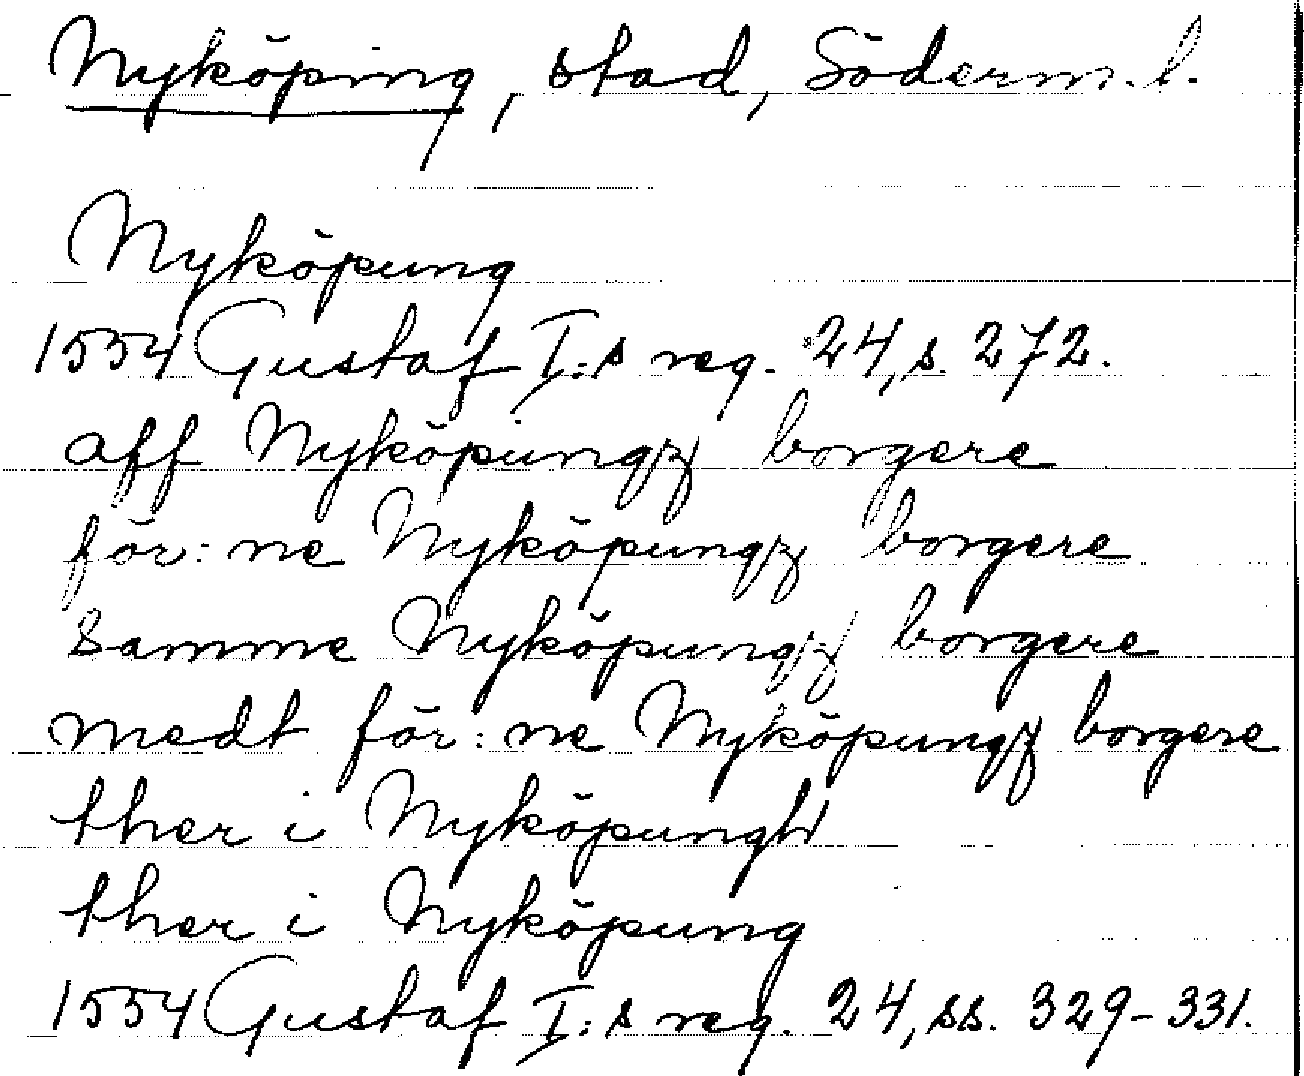 Nyköping, stad, Söderm. l.
Nyköpung
1554 Gustaf I:s reg. 24, s. 272.
aff Nyköpingz borgere
för:ne Nyköpungz borgere
samme Nyköpungz borgere
medt för:ne Nyköpungz borgere
ther i Nyköpungh
ther i Nyköpung
1554 Gustaf I:s reg. 24, ss. 329-331.